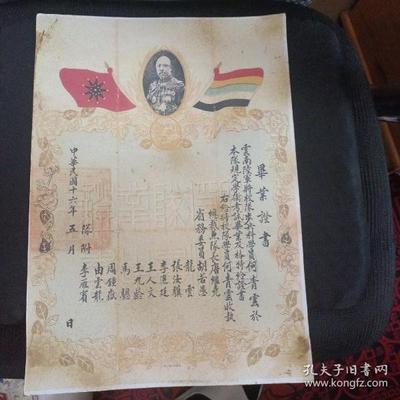 畢業證書
雲南陸軍將校隊步兵科學員何青雲於
本隊規定學術考試畢業及格特給證書
右給將校隊學員何青雲收執
總裁兼隊長唐繼堯
省務委員胡若愚
龍雲
張汝驥
李選廷
王人文
王九齡
馬驄
周鍾嶽
由雲龍
李雁賓
隊附
中華民國十六年五月 日
孔夫子旧书网
www.kongfz.com